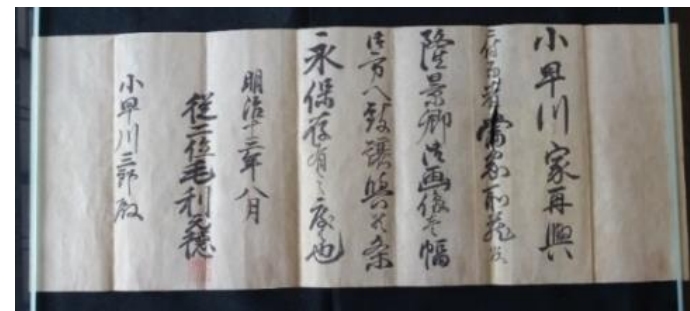 小早川家再興
ニ付而者當家所蔵之
隆景卿御画像壱幅
御方へ致譲與候条
永保存有之度也
明治十三年八月
従二位毛利元徳
小早川三郎殿